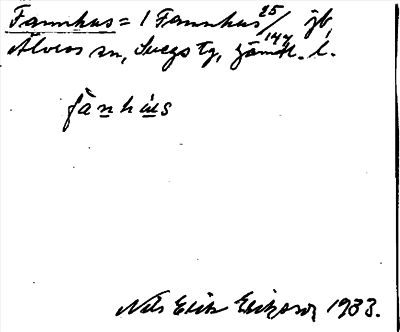 Fannhus = 1 Fannhus 25/144 jb,
Älvros sn, Svegs tg, Jämtl. l.
fànhùs
Nils Erik Erikson 1933.